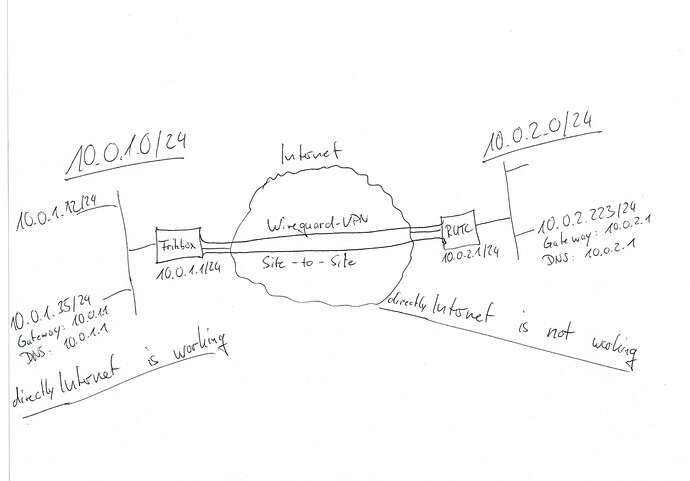 10.0.1.0/24
10.0.1.12/24
10.0.1.35/24
Gateway: 10.0.1.1
DNS: 10.0.1.1
directly Internet is working
Fritzbox
10.0.1.1/24
Internet
Wireguard-VPN
Site-to-Site
RUTC
10.0.2.1/24
10.0.2.0/24
10.0.2.223/24
Gateway: 10.0.2.1
DNS: 10.0.2.1
directly Internet is not working